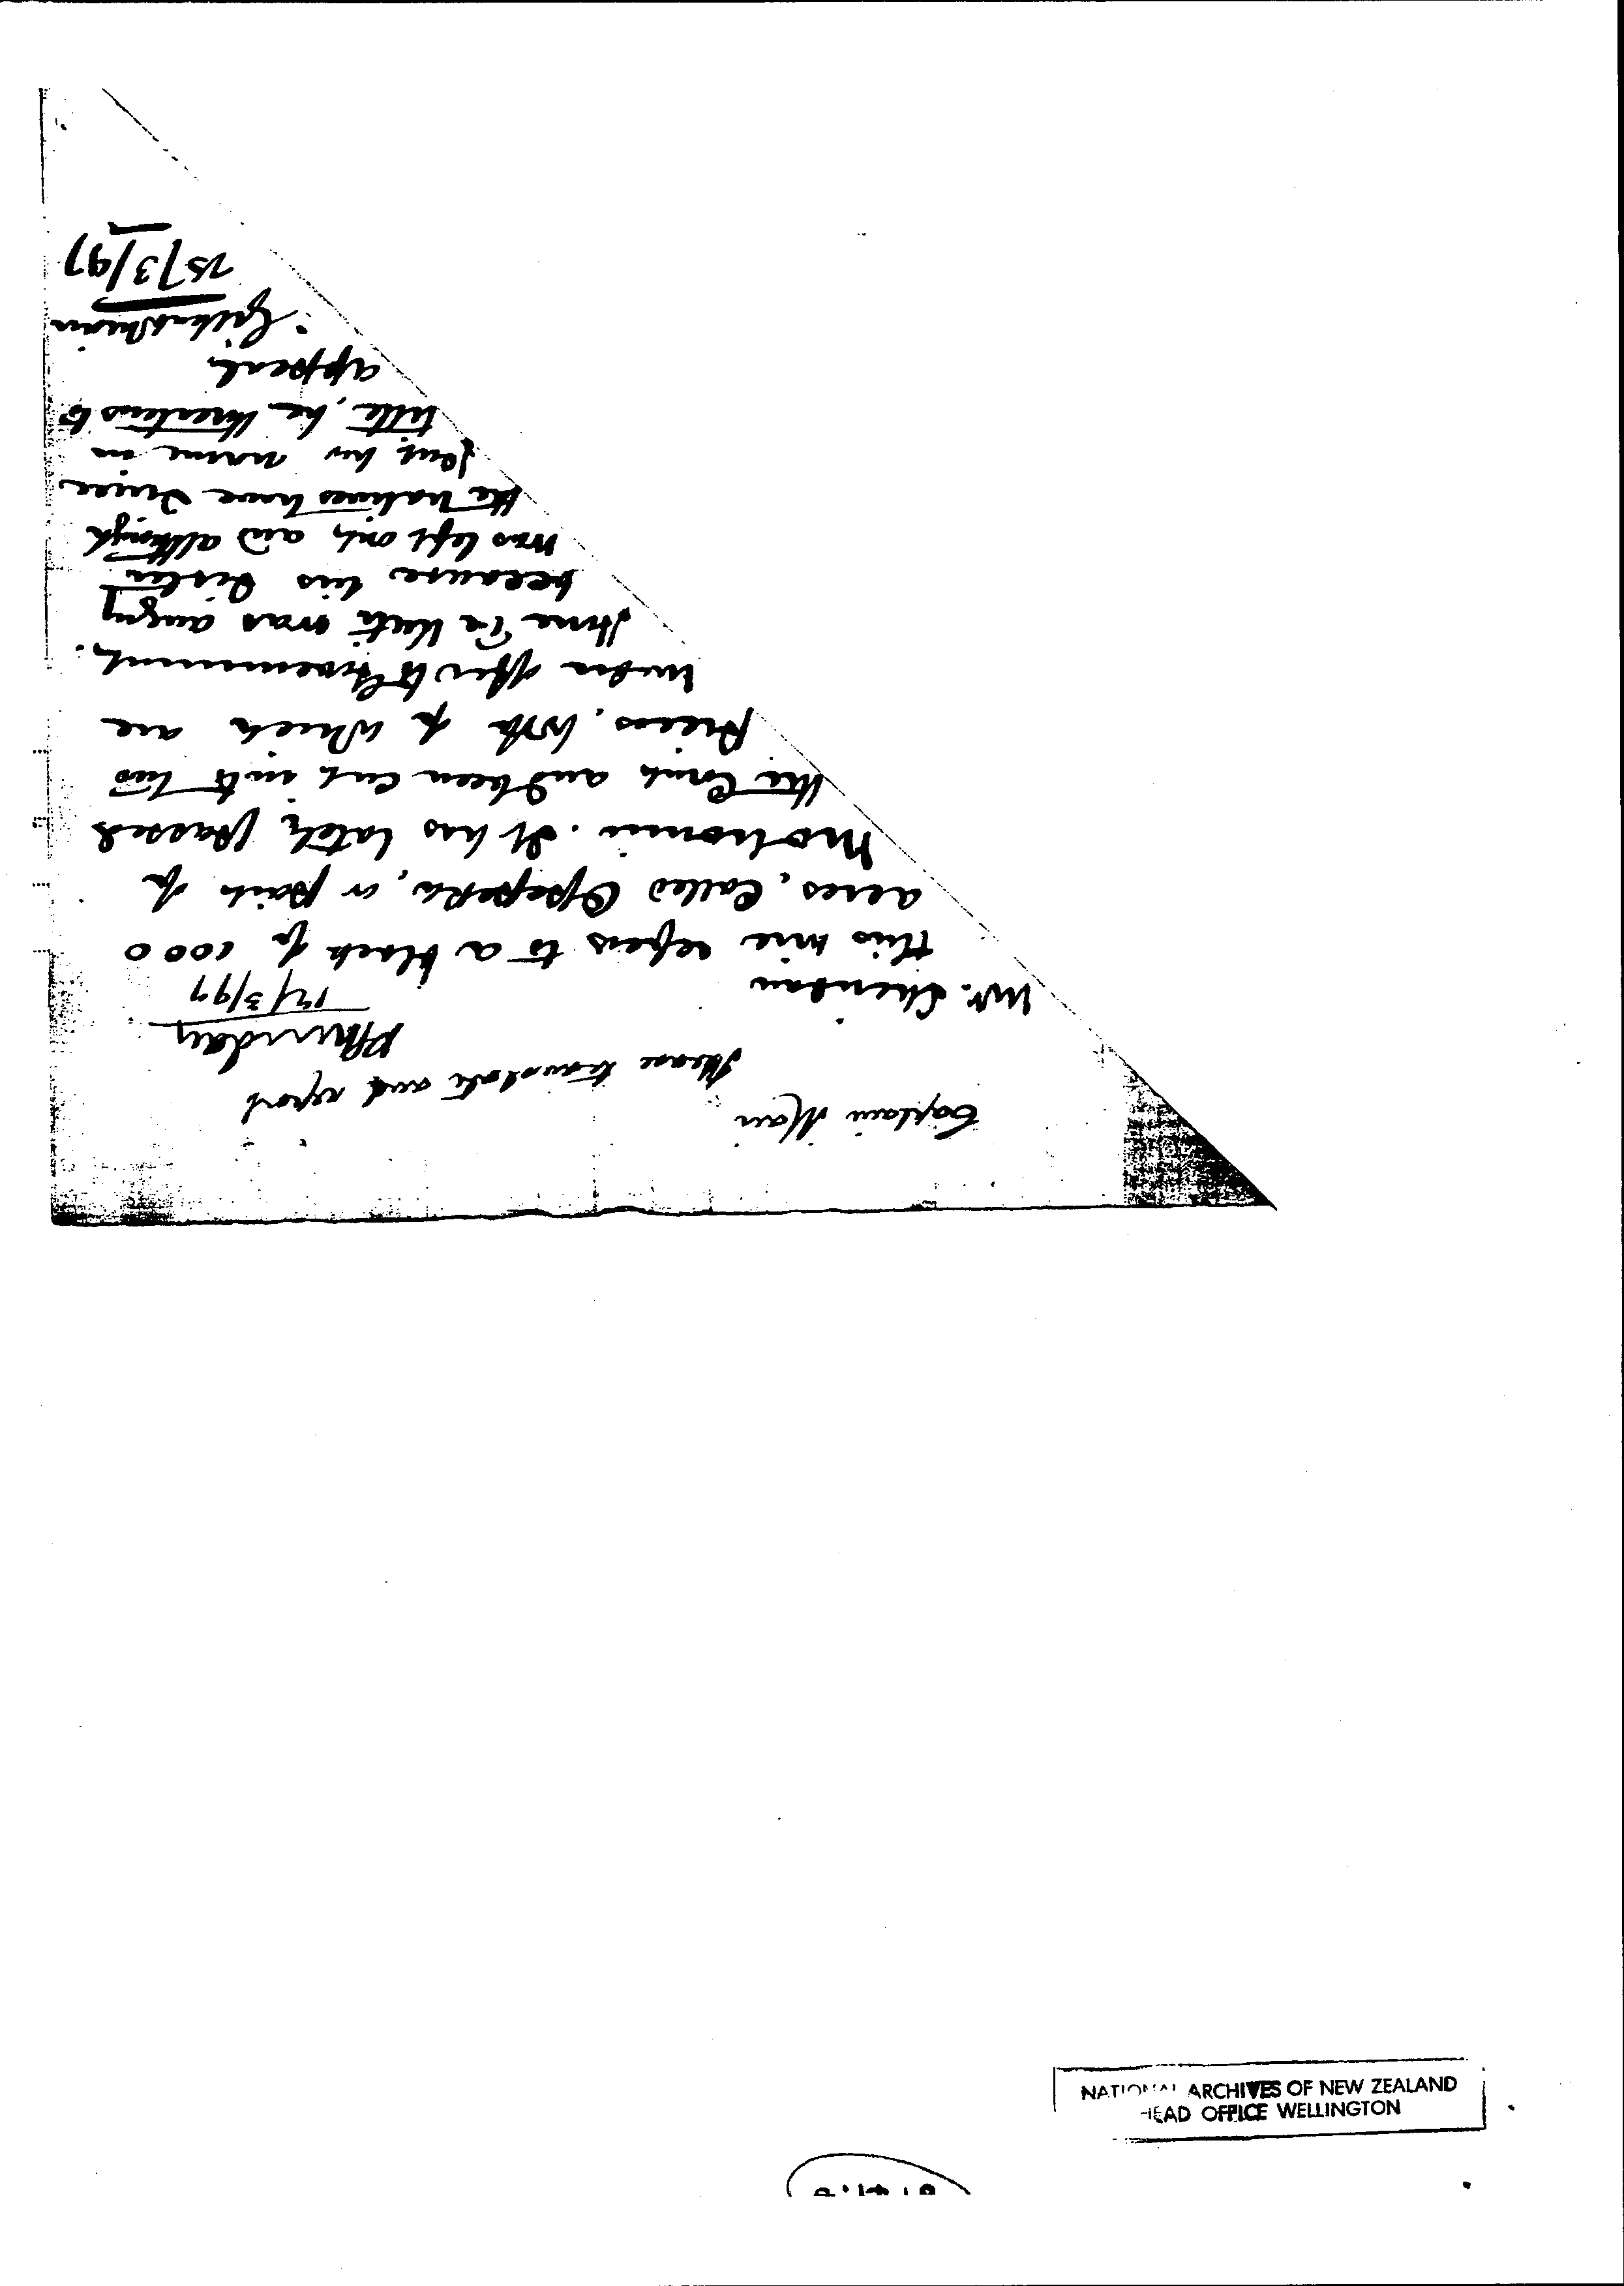 Captain Mair
Please translate and report
PSheridan
17/3/97
Mr. Sheridan
this wire refers to a block of 1000
acres, called Opepeka, or part of
Mohonui. It has lately passed
the Court and been cut into two
pieces, both of which are
under offer to Government.
Hone Te was angry
because his sister
was left out, and although
the natives have since
put her name in
title, he threatens to
appeal.
Gilbert Mair
25/3/97
NATIONAL ARCHIVES OF NEW ZEALAND
HEAD OFFICE WELLINGTON